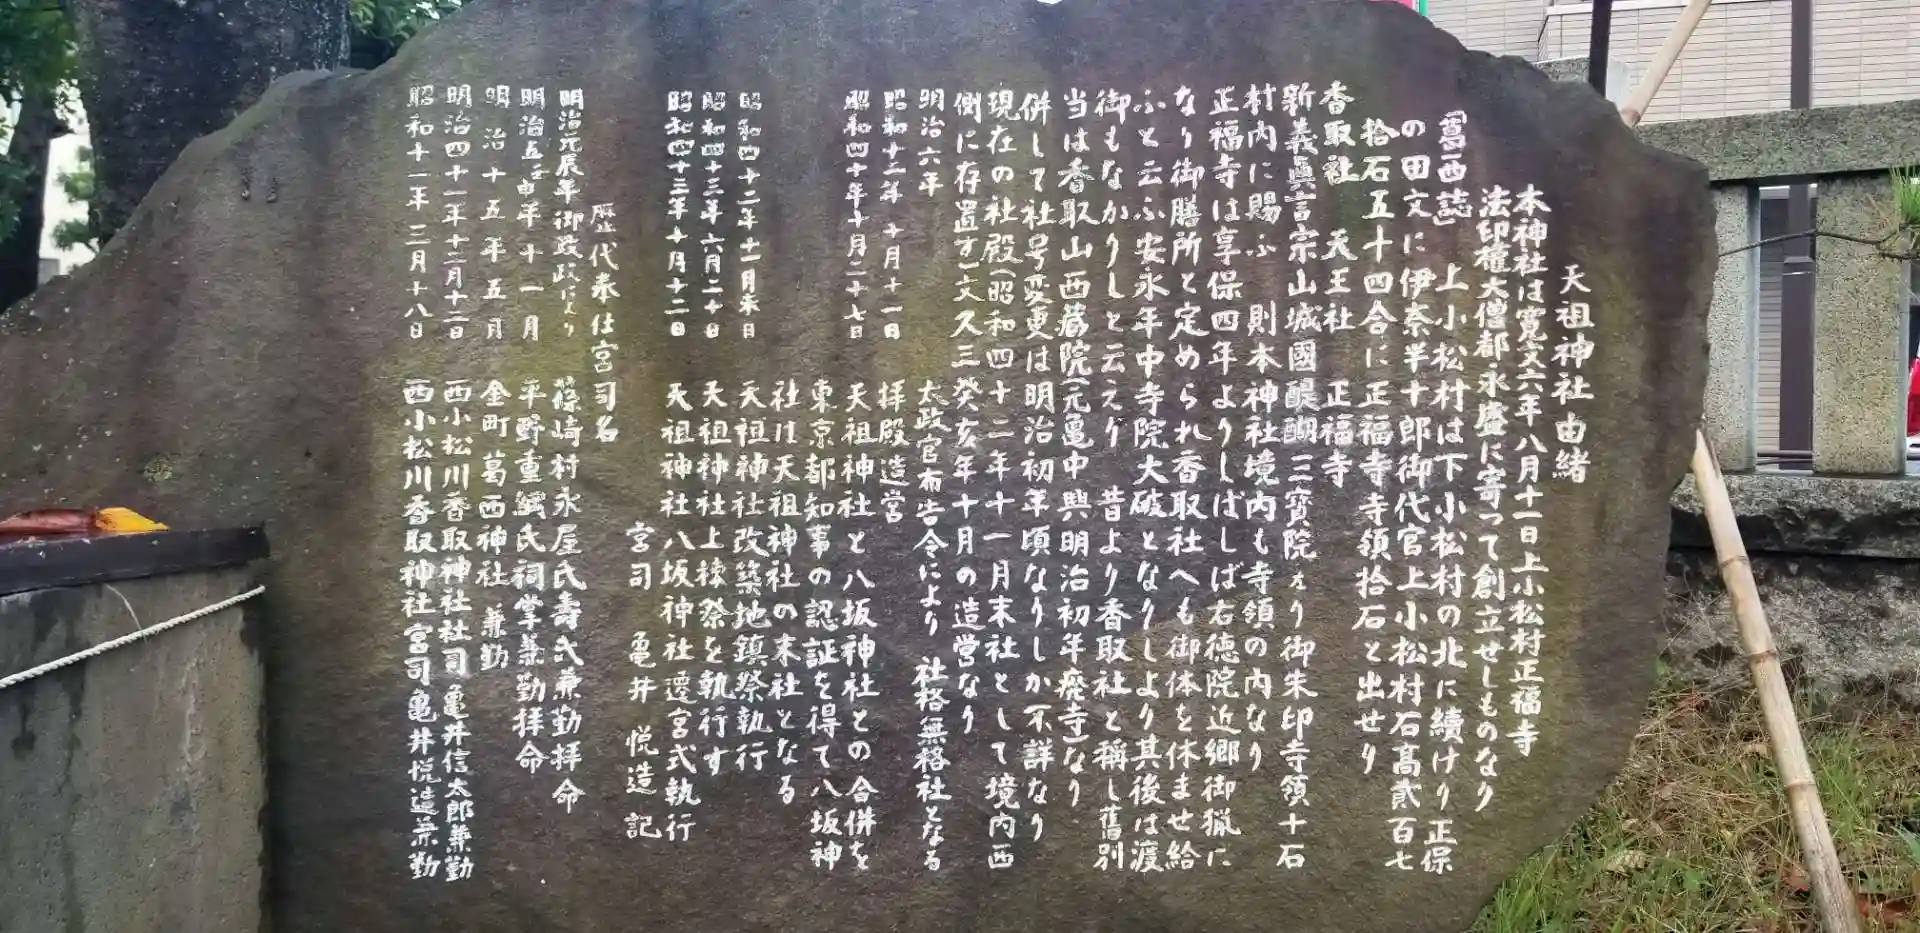 天祖神社由緒
本神社は寛文六年八月十一日上小松村正福寺
法印権大僧都永盛に寄って創立せしものなり
「葛西誌」上小松村は下小松村の北に続けり正保
の田文に伊奈半十郎御代官上小松村石高貮百七
拾石五十四合に正福寺寺領拾石と出せり
香取社 天王社 正福寺
新義真言宗山城國醍醐三寳院より御朱印寺領十石
村内に賜ふ 則本神社境内も寺領の内なり
正福寺は享保四年よりしばしば右徳院近郷御猟に
なり御膳所と定められ香取社へも御体を休ませ給
ふと云ふ安永年中寺院大破となりしより其後は渡
御もなかりしと云えり 昔より香取社と稱し舊別
当は香取山西蔵院(元亀中興明治初年廃寺)なり
併して社号変更は明治初年頃なりしか不詳なり
現在の社殿(昭和四十二年十一月末社として境内西
側に存置す)文久三癸亥年十月の造営なり
明治六年 太政官布告令により 社格無格社となる
昭和十二年十月十一日 拝殿造営
昭和四十年十月二十七日 天祖神社と八坂神社との合併を
東京都知事の認証を得て八坂神
社は天祖神社の末社となる
昭和四十二年十一月末日 天祖神社改築地鎮祭執行
昭和四十三年六月二十日 天祖神社上棟祭を執行す
昭和四十三年十月十二日 天祖神社八坂神社遷宮式執行
宮司 亀井悦造記
歴代奉仕宮司名
明治元辰年御政政により 篠崎村永屋氏壽氏兼勤拝命
明治五壬申年十一月 平野重綱氏祠掌兼勤拝命
明治十五年五月 金町葛西神社兼勤
明治四十一年十二月十二日 西小松川香取神社社司亀井信太郎兼勤
昭和十一年三月十八日 西小松川香取神社宮司亀井悦造兼勤